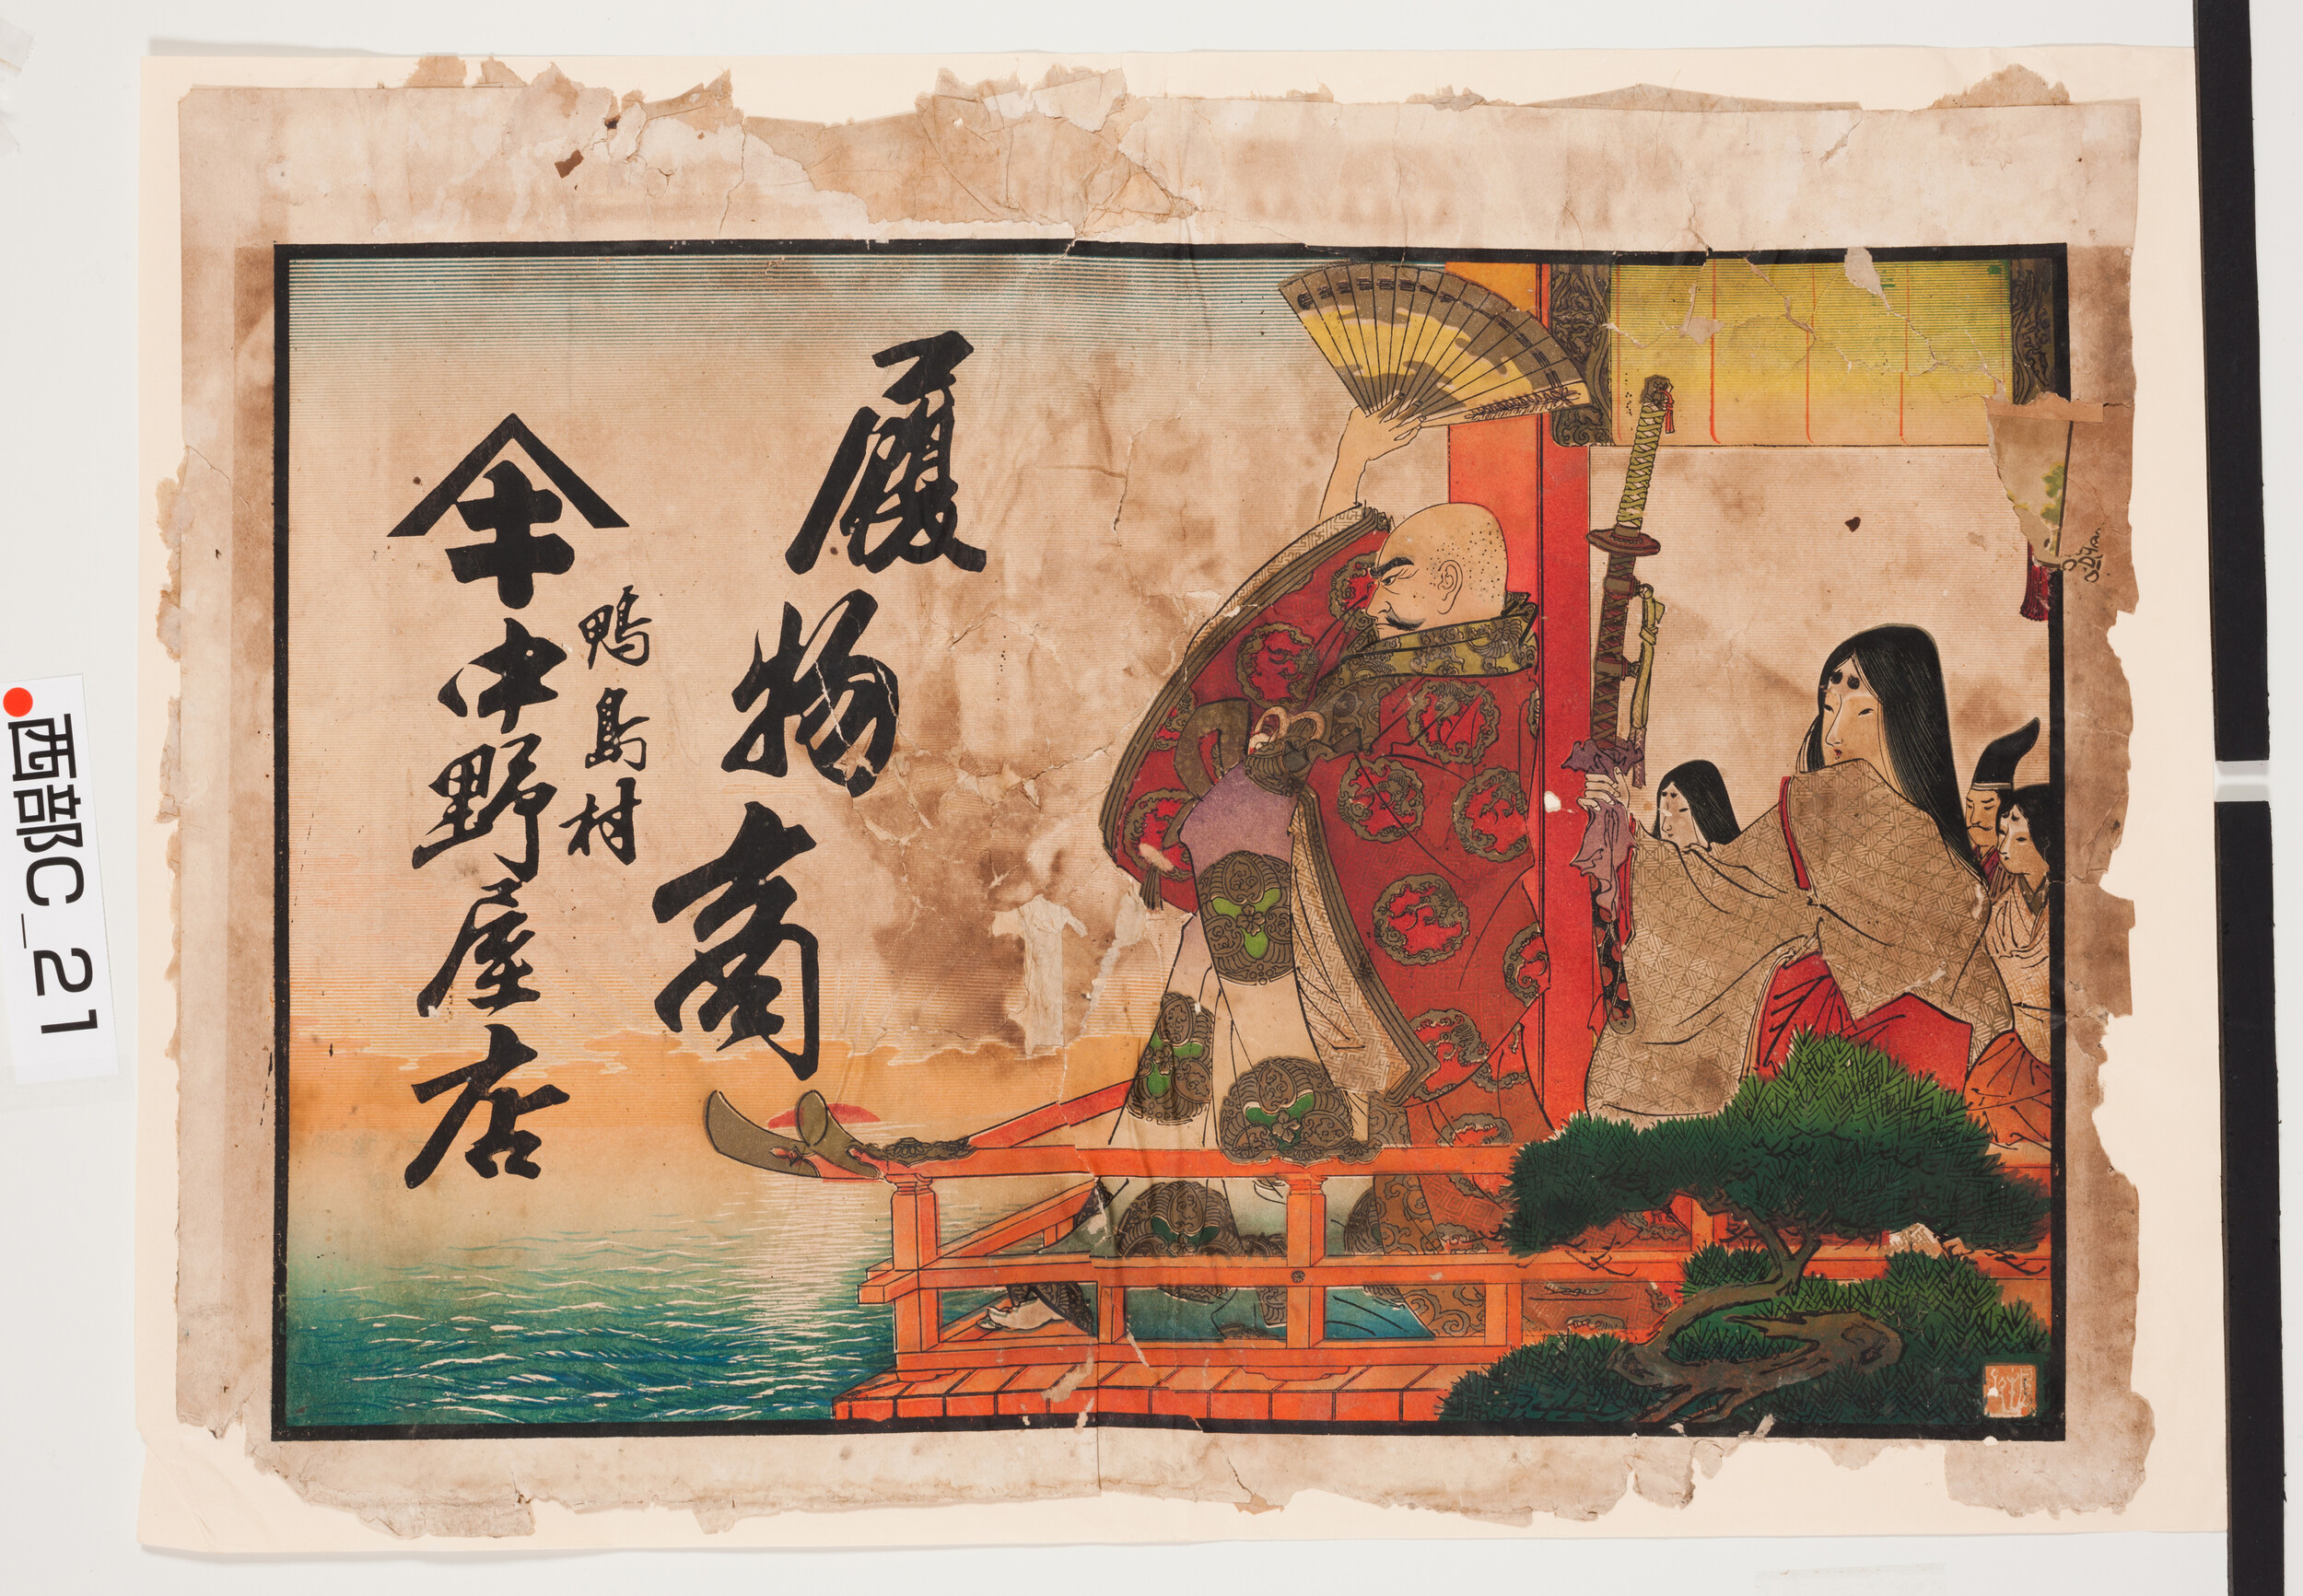 履物商
鴨島村
中野屋店
西部C_21